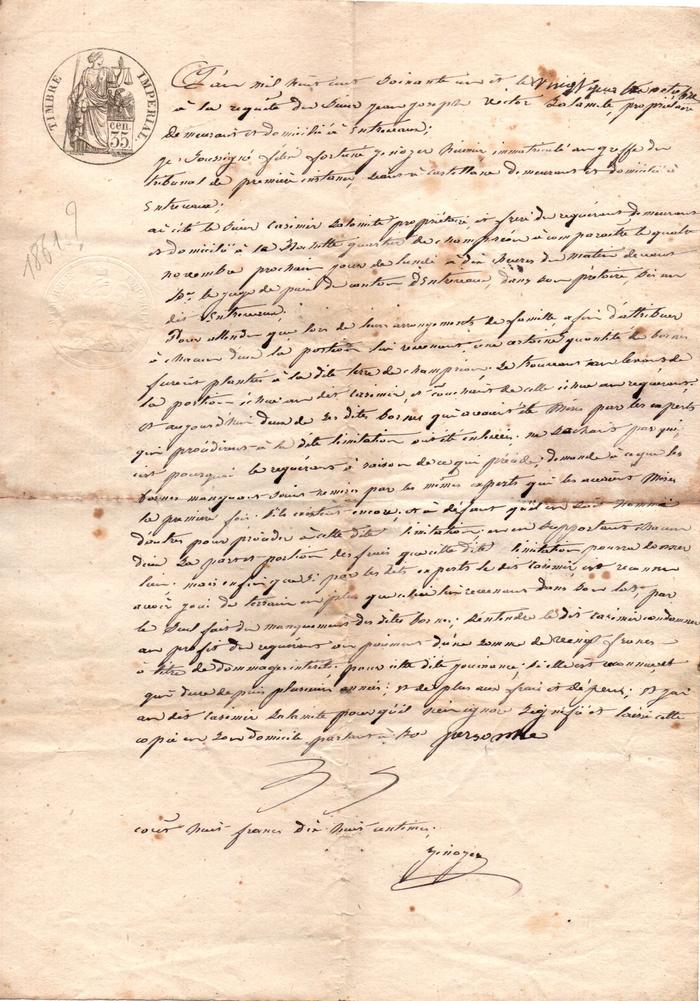 TIMBRE IMPERIAL.
35 cen.
1861?
L'an mil huit cent soixante un et le vingt octobre
à la requête du Sieur jean joseph victor Salamite, propriétaire
demeurant et domicilié à Entrevaux;
je soussigné fortuné ginoyer huissier immatriculé au greffe du
tribunal de première instance, séant à Castellane demeurant et domicilié à
Entrevaux;
ai cité le Sieur Casimir Salamite propriétaire, et frère du requérant demeurant
et domicilié à la Rochette quartier de champrion à comparaitre le quatre
novembre prochain jour de lundi à dix heures du matin devant
Mr le juge de paix du canton d'Entrevaux, dans son prétoire sis au
dit Entrevaux;
Pour attendu que lors de leurs arrangements de famille afin d'attribuer
à chacun d'eux la portion lui revenant une certaine quantité de bornes
furent plantés à la dite terre de champrion. se trouvant
la portion échue au dit casimir, et touchant de celle échue au requérant
et aujourd'hui deux de ces dites bornes qui avaient été mises par les experts
qui procédèrent à la dite limitation ont été enlevées; ne sachant par qui,
c'est pourquoi le requérant à raison de ce qui précède, demande à ce que les
bornes manquant soient remises par les mêmes experts qui les avaient mises
la première fois. s'ils existent encore; et à défaut qu'il en soit nommé
d'autres pour procéder à cette dite limitation, en en supportant chacun
d'eux sa part et portion des frais que cette dite limitation pourra donner
lieu; mais enfin que si par les dits experts le dit casimir, est reconnu
avoir joui du terrain en plus que celui lui revenant dans son lot, par
le seul fait du manquement des dites bornes; s'entendre le dit casimir condamner
au profit du requérant au paiement d'une somme de vingt francs
à titre de dommages intérêts; pour cette dite jouissance, si elle est reconnue, et
qui dure depuis plusieurs années; et de plus aux frais et dépens; et j'ai
au dit casimir Salamite pour qu'il n'en ignore signifié et laissé cette
copie en son domicile parlant à sa personne
cout huit francs dix huit centimes.
ginoyer